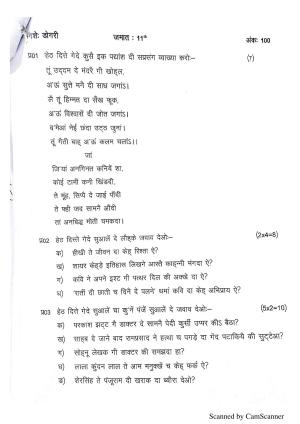 विशेः डोगरी जमात : 11th अंकः 100
प्र01 हेठ दित्ते गेदे कुसै इक पद्यांश दी सप्रसंग व्याख्या करोः- (7)
तूं उद्दम दे मंदरै गी खोह्ल,
अ'ऊं सुत्ते मनै दी साध जगांऽ।
लै तूं हिम्मत दा सैंख फूक,
अ'ऊं विश्वासै दी जोत जगांऽ।
ब'मेआं नेईं छंदा उट्ठ जुगां।
तूं गैती चाह् अ'ऊं कलम चलांऽ।।
जां
जि'यां अनगिनत कनियें शा,
कोई टामी कनी खिंडदी,
ते मूंह्, सिप्पै दे जाई पौंदी
ते पही जद सामनै औंदी
तां अनबिद्ध मोती चमकदा।
प्र02 हेठ दित्ते गेदे सुआलें दे लौह्के जवाब देओः- (2x4=8)
क) हीखी ते जीवन दा केह् रिश्ता ऐ?
ख) शायर केह्ड़े इतिहास लिखने आस्तै काह्न्नी मंगदा ऐ?
ग) कवि ने अपने इश्ट गी पत्थर दिल की आक्खे दा ऐ?
घ) धा'र्ती दी छाती च विनै दे पलने थमां कवि दा केह् अभिप्राय ऐ?
प्र03 हेठ दित्ते गेदे सुआलें चा कु'नें पंजें सुआलें दे जवाब देओः- (5x2=10)
क) परकाश झट्ट गै डाक्टर दे सामनै पेदी कुर्सी उप्पर कीऽ बैठा?
ख) साहब दे जाने बाद रामप्रसाद ने हत्था च पगड़े दा गेंद पटाकियै की सुट्टेआ?
ग) सोह्नू लेखक गी डाक्टर की समझदा हा?
घ) लाला कुंदन लाल ते आम मनुक्खें च केह् फर्क ऐ?
ङ) शेरसिंह ते पंजूराम दी खराक दा ब्यौरा देओ?
Scanned by CamScanner